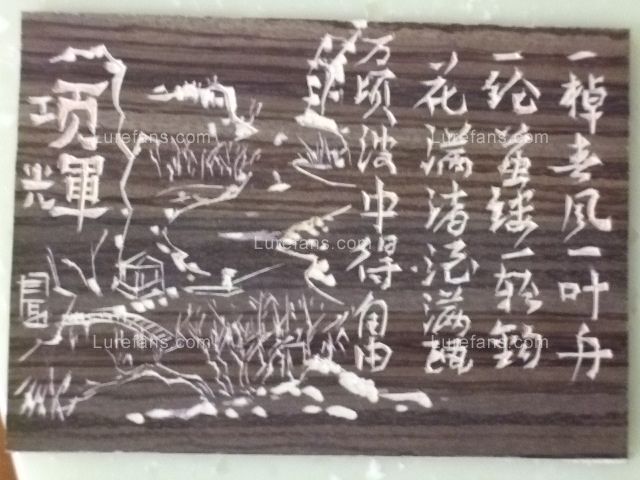 一棹春风一叶舟
一纶茧缕一轻钩
花满渚酒满瓯
万顷波中得自由
项輝
Lurefans.com
Lurefans.com
Lurefans.com
Lurefans.com
Lurefans.com
Lurefans.com